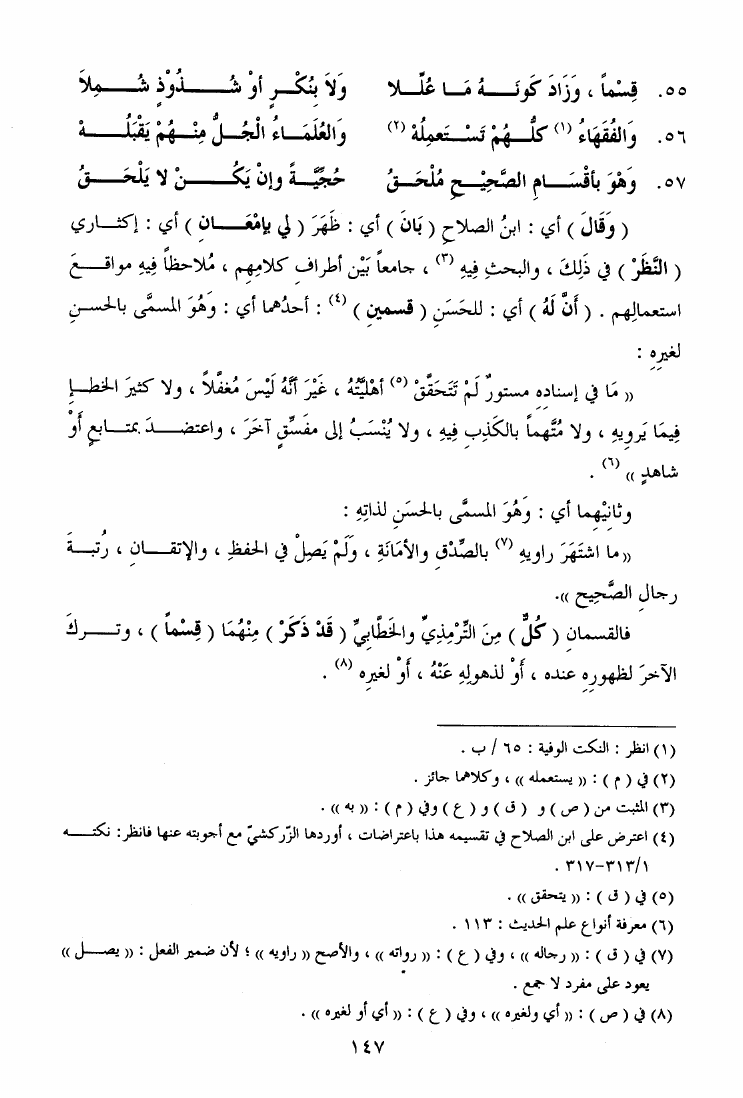 ٥٥. قِسْماً ، وَزَادَ كَونَـــهُ مَـــا عُلِّــلا وَلاَ بِنُكْـــرٍ أوْ شُـــــذُوْذٍ شُـــمِلاَ
٥٦. وَالْفُقَهَاءُ (١) كلُّـــهُمْ تَسْـــتَعمِلُهْ (٢) وَالعُلَمَــاءُ الْجُـــلُّ مِنْـــهُمْ يَقْبَلُـــهْ
٥٧. وَهْوَ بأقْسَـــامِ الصَّحِيْـــحِ مُلْحَـــقُ حُجِّيَّـــةً وإنْ يَكُـــــنْ لا يَلْحَـــقُ
( وَقَالَ ) أي : ابنُ الصلاحِ ( بَانَ ) أي : ظَهَرَ ( لي بإمْعَـــانِ ) أي : إكثـــاري
( النَّظَرْ ) في ذَلِكَ ، والبحثِ فِيهِ (٣) ، جامعاً بَيْن أطرافِ كلامِهم ، مُلاحظاً فِيهِ مواقـــعَ
استعمالِهم . ( أَنَّ لَهُ ) أي : للحَسَنِ ( قسمينِ ) (٤) : أحدُهما أي : وَهُوَ المسمَّى بالحســنِ
لغيرِهِ :
(( مَا في إسنادِهِ مستورٌ لَمْ تَتَحقَّقْ (٥) أهْليَّتُهُ ، غَيْرَ أنَّهُ لَيْسَ مُغفَّلاً ، ولا كثيرَ الخطـــإِ
فِيمَا يَرويهِ ، ولا مُتَّهماً بالكَذِبِ فِيهِ ، ولا يُنْسَبُ إلى مفسِّقٍ آخرَ ، واعتضـــدَ بمتـــابعٍ أَوْ
شاهدٍ )) (٦) .
وثانِيْهِما أي : وَهُوَ المسمَّى بالحَسَنِ لذاتِهِ :
((ما اشتَهَرَ راويهِ (٧) بالصِّدْقِ والأمَانَةِ ، وَلَمْ يَصِلْ في الحفظِ ، والإتقـــانِ ، رُتبـــةَ
رجالِ الصَّحِيحِ )).
فالقسمانِ ( كُلٌّ ) مِنَ التِّرْمِذِيِّ والخَطَّابيِّ ( قَدْ ذَكَرْ ) مِنْهُمَا ( قِسْماً ) ، وتـــركَ
الآخرَ لظهورِهِ عنده ، أَوْ لذهولِهِ عَنْهُ ، أَوْ لغيرِهِ (٨) .
(١) انظر : النكت الوفية : ٦٥ / ب .
(٢) في ( م ) : (( يستعمله )) ، وكلاهما جائز .
(٣) المثبت من ( ص ) و ( ق ) و ( ع ) وفي ( م ) : (( به )) .
(٤) اعترض على ابن الصلاح في تقسيمه هذا باعتراضات ، أوردها الزّركشيّ مع أجوبته عنها فانظر: نكتـــه
١/٣١٣-٣١٧ .
(٥) في ( ق ) : (( يتحقق )) .
(٦) معرفة أنواع علم الحديث : ١١٣ .
(٧) في ( ق ) : (( رجاله )) ، وفي ( ع ) : (( رواته )) ، والأصح (( راويه )) ؛ لأن ضمير الفعل : (( يصـــل ))
يعود على مفرد لا جمع .
(٨) في ( ص ) : (( أي ولغيره )) ، وفي ( ع ) : (( أي أو لغيره )) .
١٤٧